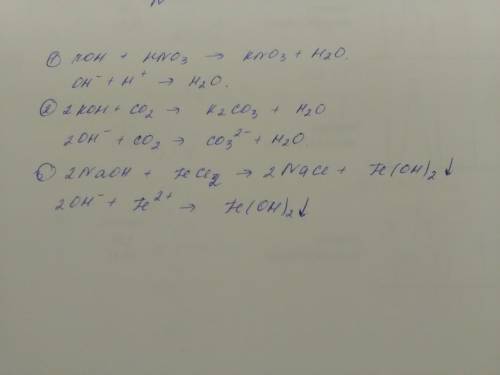 1) KOH + HNO3 → KNO3 + H2O.
OH⁻ + H⁺ → H2O.
2) 2KOH + CO2 → K2CO3 + H2O
2OH⁻ + CO2 → CO3²⁻ + H2O
3) 2NaOH + FeCl2 → 2NaCl + Fe(OH)2↓
2OH⁻ + Fe²⁺ → Fe(OH)2↓